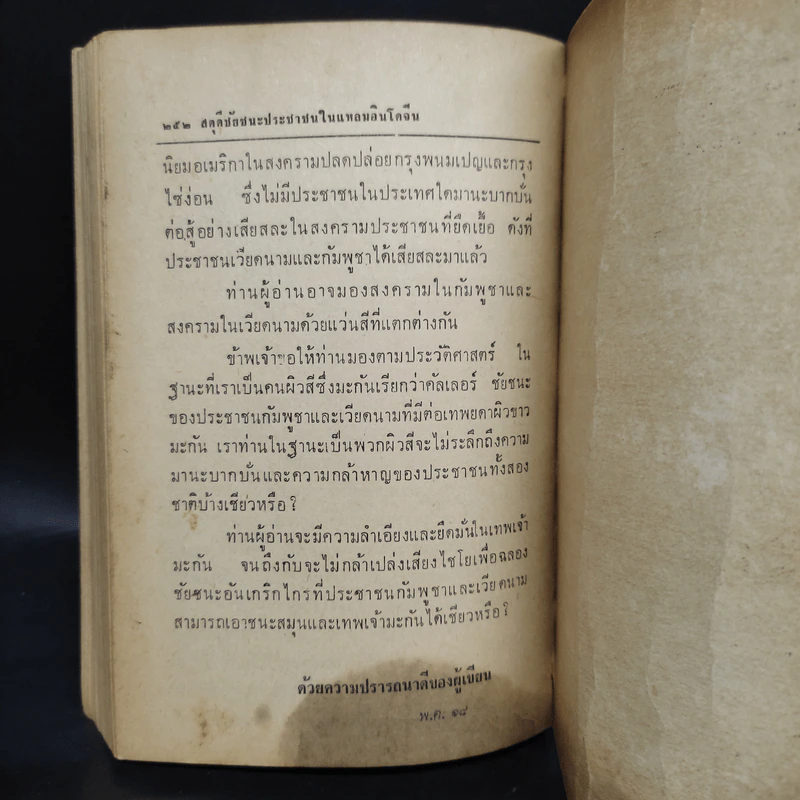 ๒๕๒ สดุดีชัยชนะประชาชนในแหลมอินโดจีน
นิยมอเมริกาในสงครามปลดปล่อยกรุงพนมเปญและกรุง
ไซ่ง่อน ซึ่งไม่มีประชาชนในประเทศใดมานะบากบั่น
ต่อสู้อย่างเสียสละในสงครามประชาชนที่ยืดเยื้อ ดังที่
ประชาชนเวียดนามและกัมพูชาได้เสียสละมาแล้ว
ท่านผู้อ่านอาจมองสงครามในกัมพูชาและ
สงครามในเวียดนามด้วยแว่นสีที่แตกต่างกัน
ข้าพเจ้าขอให้ท่านมองตามประวัติศาสตร์ ใน
ฐานะที่เราเป็นคนผิวสีซึ่งมะกันเรียกว่าคัลเลอร์ ชัยชนะ
ของประชาชนกัมพูชาและเวียดนามที่มีต่อเทพยดาผิวขาว
มะกัน เราท่านในฐานะเป็นพวกผิวสีจะไม่ระลึกถึงความ
มานะบากบั่นและความกล้าหาญของประชาชนทั้งสอง
ชาติบ้างเชียวหรือ?
ท่านผู้อ่านจะมีความลำเอียงและยึดมั่นในเทพเจ้า
มะกัน จนถึงกับจะไม่กล้าเปล่งเสียงไชโยเพื่อฉลอง
ชัยชนะอันเกริกไกรที่ประชาชนกัมพูชาและเวียดนาม
สามารถเอาชนะสมุนและเทพเจ้ามะกันได้เชียวหรือ?
ด้วยความปรารถนาดีของผู้เขียน
พ.ค. ๑๘